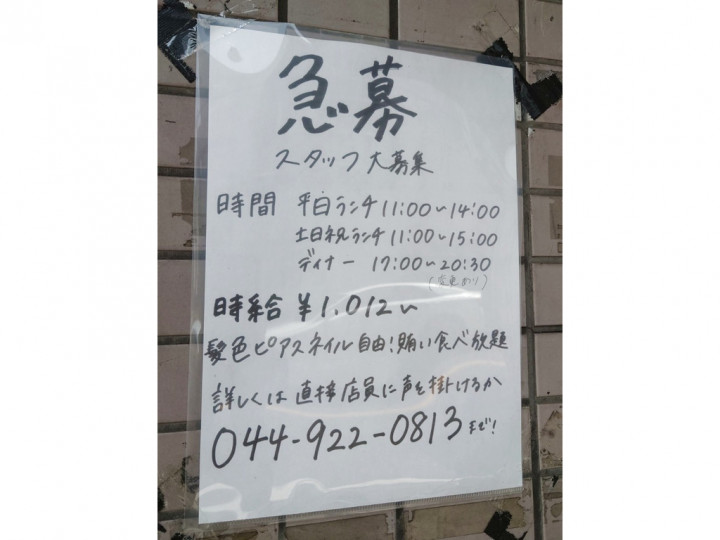 急募
スタッフ大募集
時間 平日ランチ 11:00~14:00
土日祝ランチ 11:00~15:00
ディナー 17:00~20:30
(変更あり)
時給 ¥1,012~
髪色ピアスネイル自由!賄い食べ放題
詳しくは直接店員に声を掛けるか
044-922-0813まで!